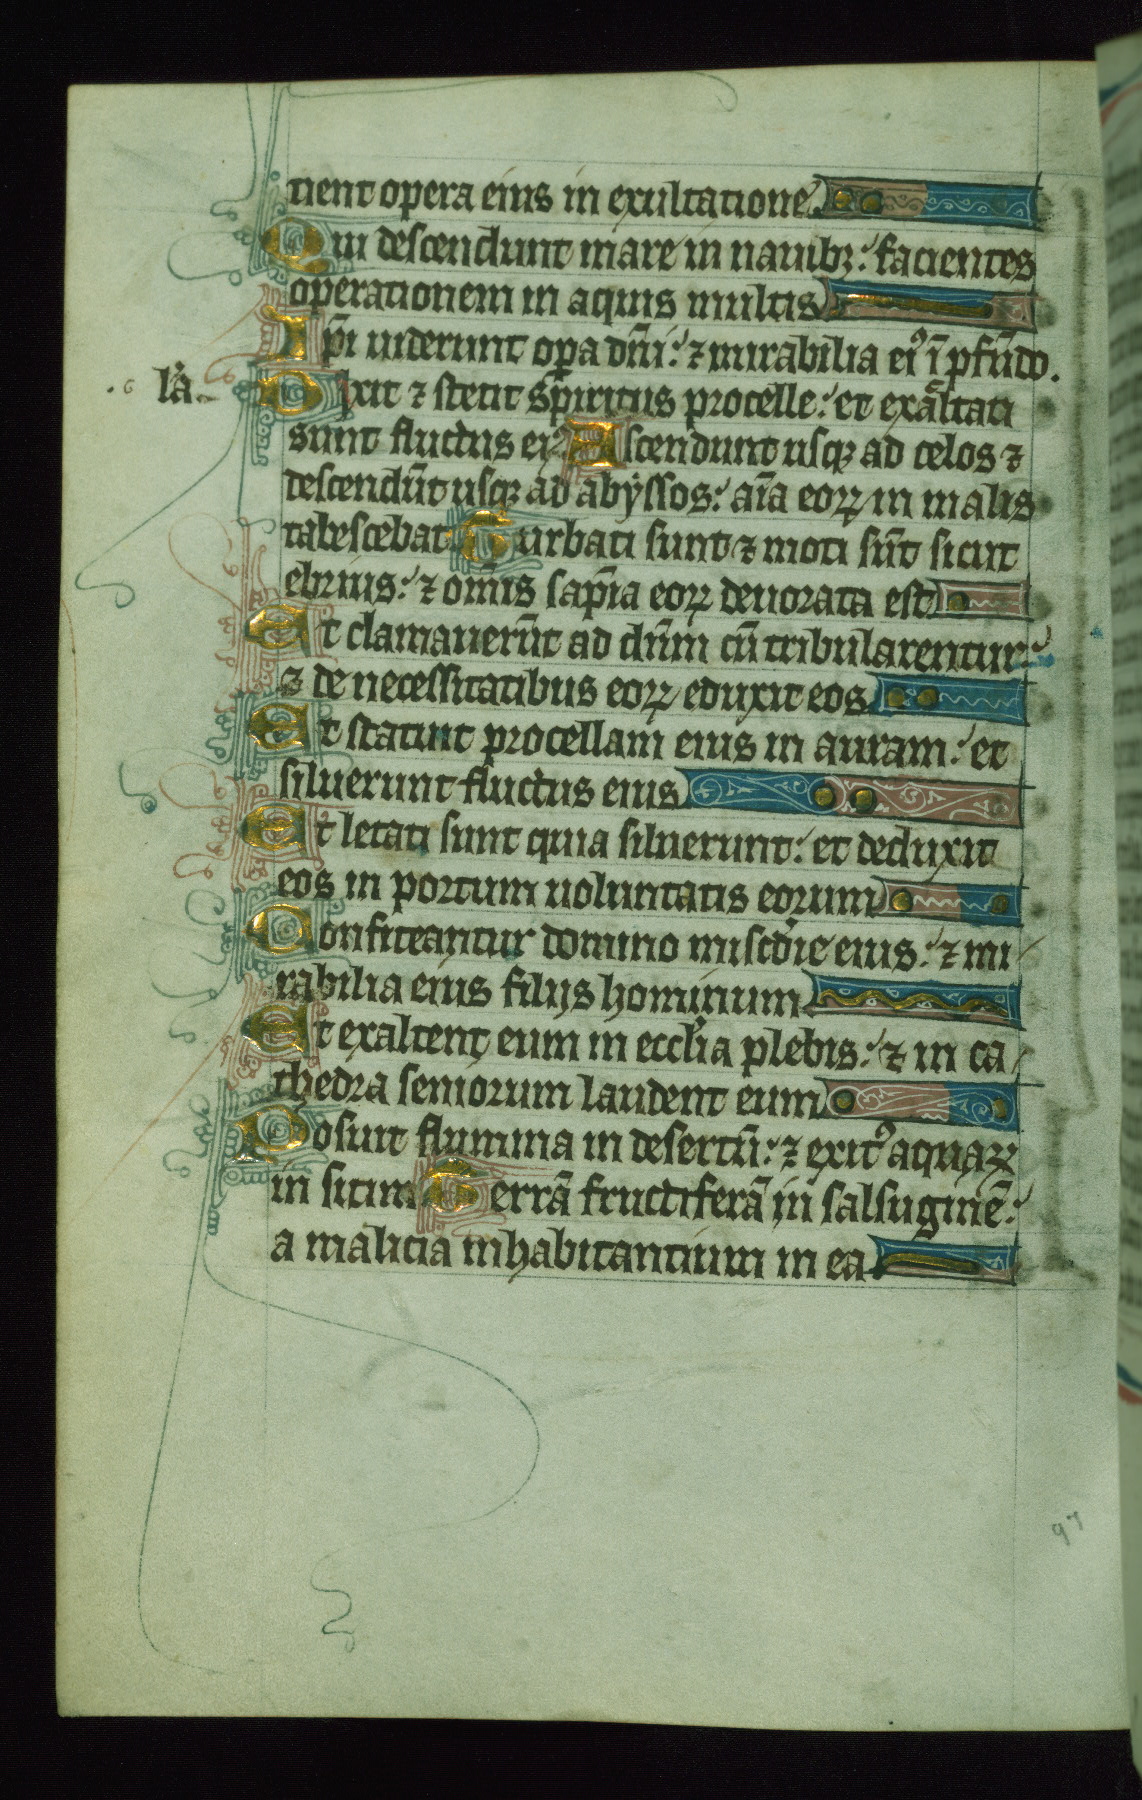 tient opera eius in exultatione
Qui descendunt mare in nauibꝫ: facientes
operationem in aquis multis
Ip̄i uiderunt oꝑa dn̄i: ⁊ mirabilia eiꝰ ī pfūdo.
la. Dixit ⁊ stetit sp̄iritus procelle: et exaltati
sunt fluctus eiꝰ Ascendunt usqꝫ ad celos ⁊
descendūt usqꝫ ad abyssos: aīa eoꝝ in malis
tabescebat Turbati sunt ⁊ moti sūt sicut
ebrius: ⁊ om̄is sap̄ia eoꝝ deuorata est
Et clamauerūt ad dn̄m cū tribularentur:
⁊ de necessitatibus eoꝝ eduxit eos
Et statuit procellam eius in auram: et
siluerunt fluctus eius
Et letati sunt quia siluerunt: et deduxit
eos in portum uoluntatis eorum
Confiteantur domino misc̄die eius: ⁊ mi
rabilia eius filijs hominum
Et exaltent eum in eccl̄ia plebis: ⁊ in ca
thedra seniorum laudent eum
Posuit flumina in desertū: ⁊ exitꝰ aquaꝝ
in sitim Terrā fructiferā in salsuginē:
a malicia inhabitantium in ea
97